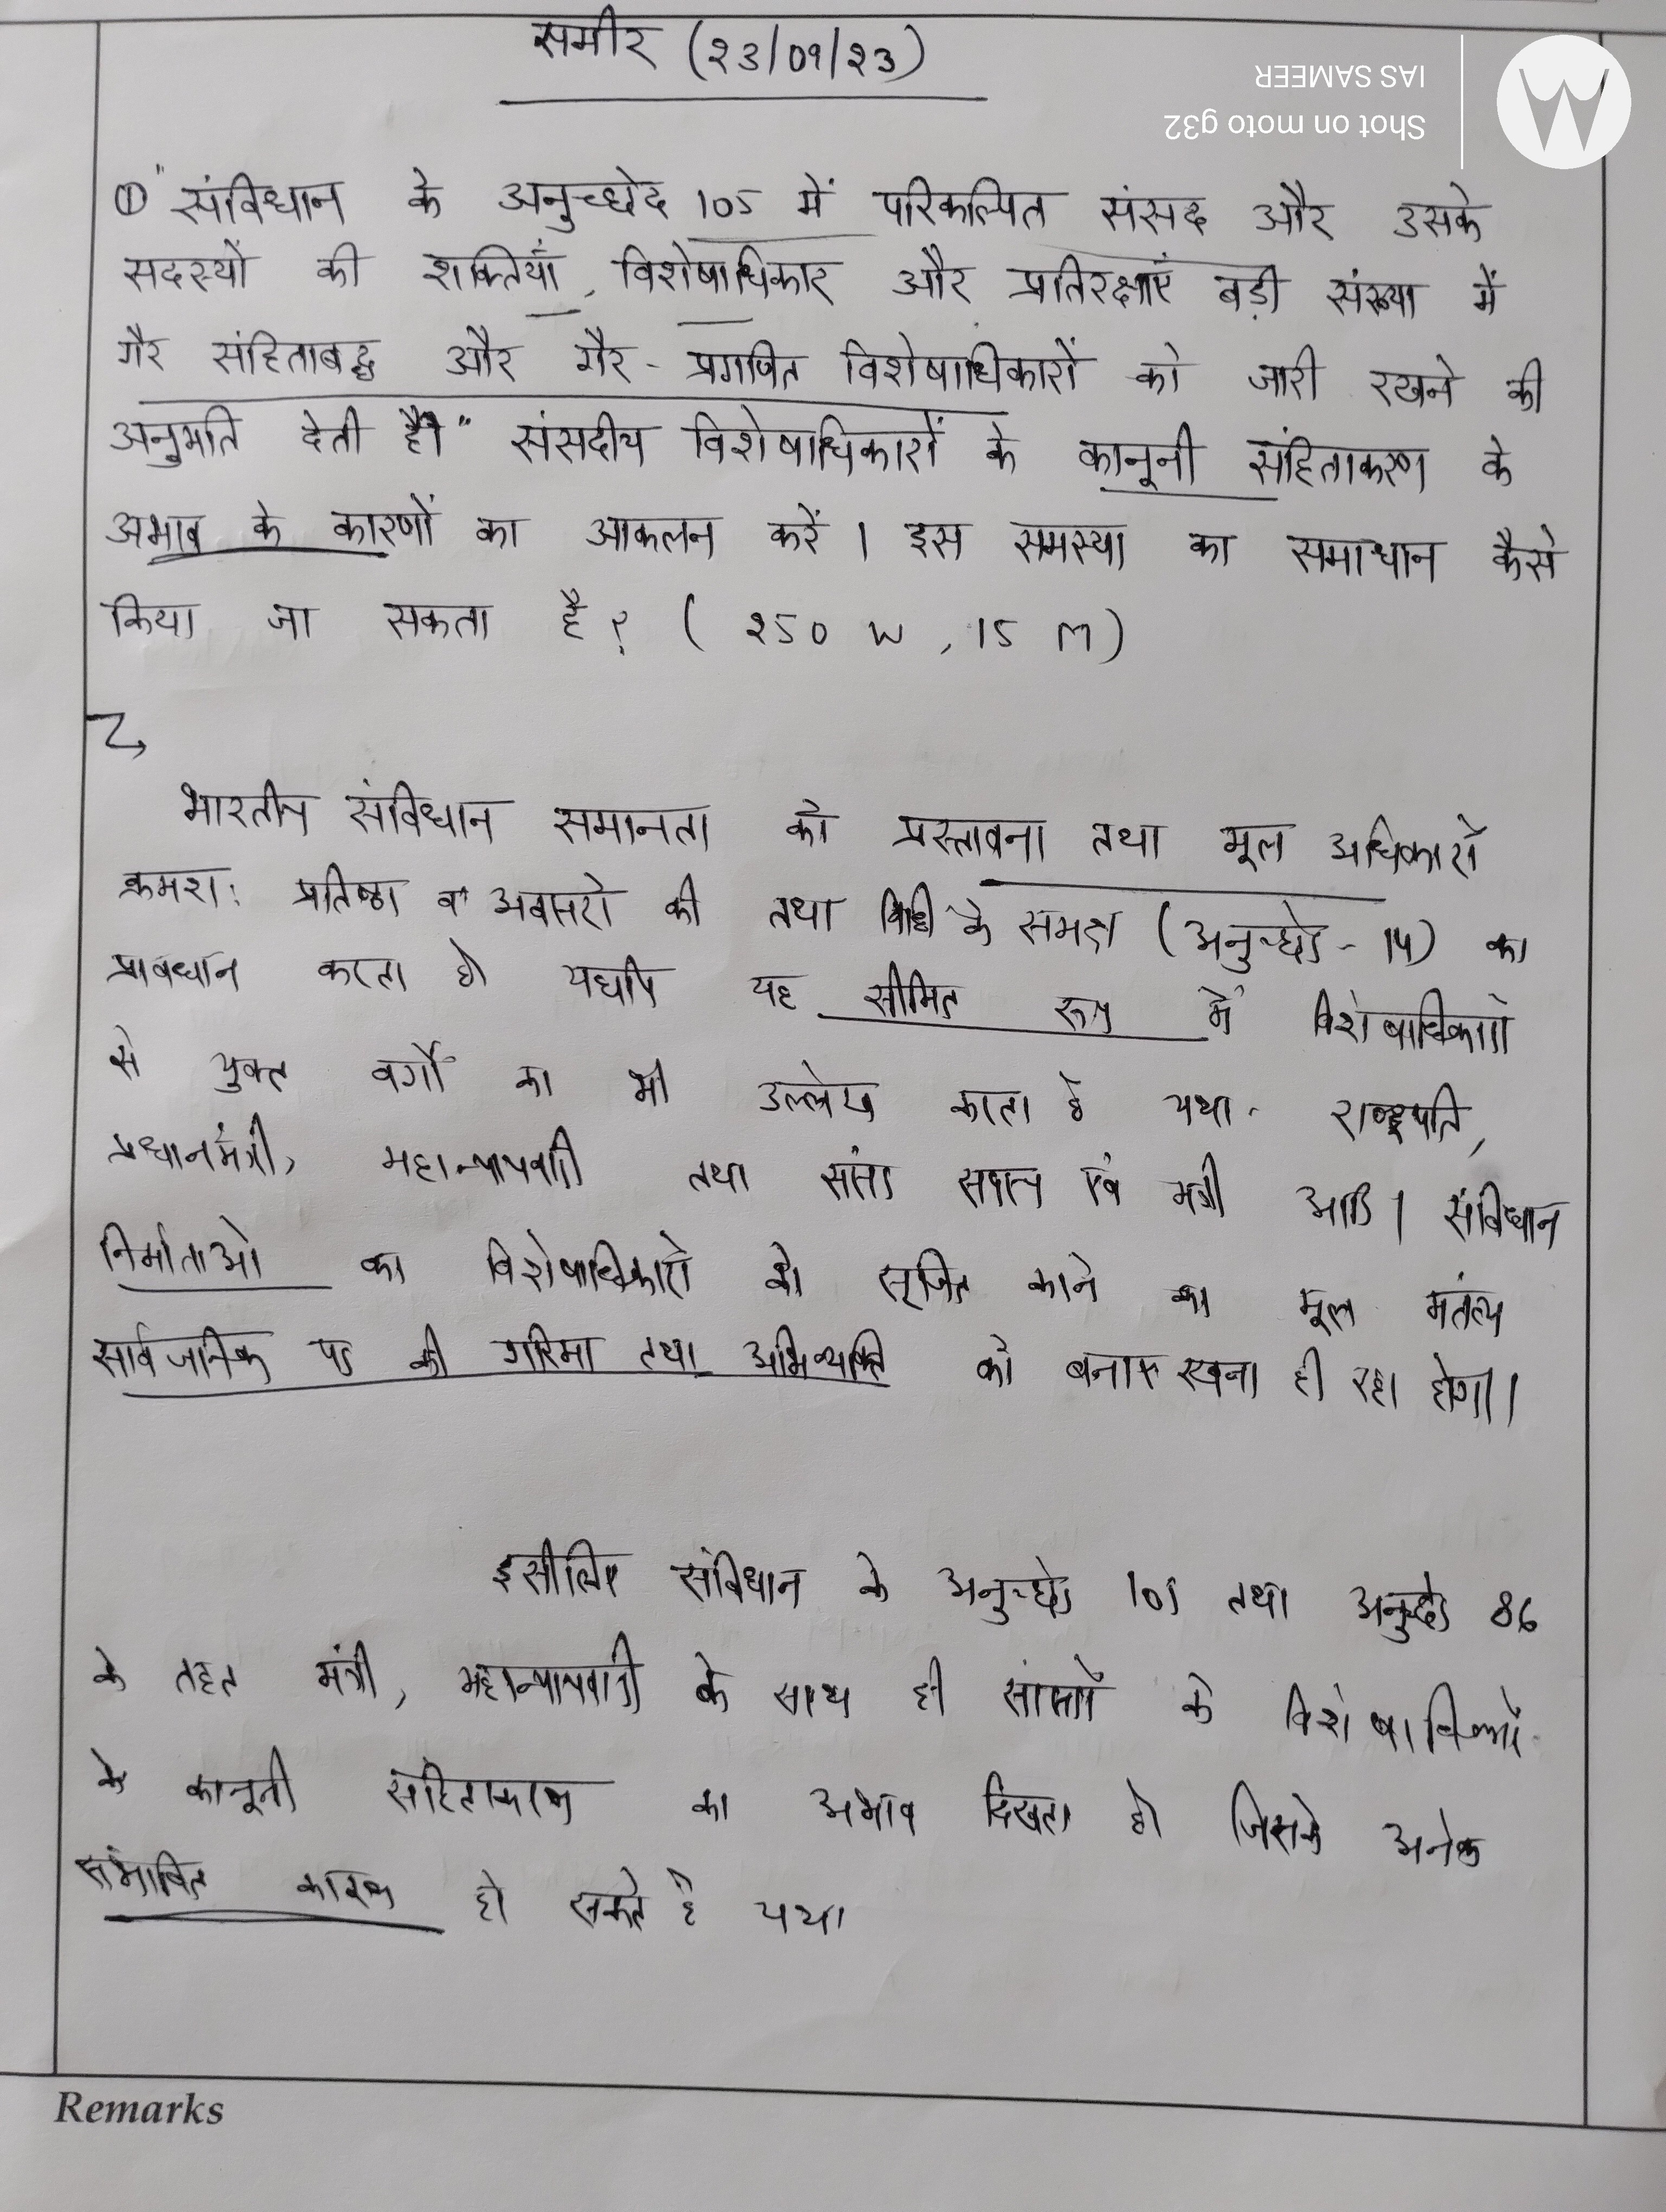 समीर (23/09/23)
IAS SAMEER
Shot on moto g32
① "संविधान के अनुच्छेद 105 में परिकल्पित संसद और उसके
सदस्यों की शक्तियाँ, विशेषाधिकार और प्रतिरक्षाएं बड़ी संख्या में
गैर संहिताबद्ध और गैर - प्रगणित विशेषाधिकारों को जारी रखने की
अनुमति देती है।" संसदीय विशेषाधिकारों के कानूनी संहिताकरण के
अभाव के कारणों का आकलन करें । इस समस्या का समाधान कैसे
किया जा सकता है ? ( 250 W , 15 M )
भारतीय संविधान समानता को प्रस्तावना तथा मूल अधिकारो
क्रमश: प्रतिष्ठा व अवसरो की तथा विधि के समक्ष (अनुच्छेद - 14) का
प्रावधान करता है। यद्यपि यह सीमित रूप में विशेषाधिकारो
से युक्त वर्गों का भी उल्लेख करता है यथा - राष्ट्रपति,
प्रधानमंत्री, महान्यायवादी तथा संसद सदस्य एवं मंत्री आदि | संविधान
निर्माताओ का विशेषाधिकारो को सृजित करने का मूल मंतव्य
सार्वजनिक पद की गरिमा तथा अभिव्यक्ति को बनाए रखना ही रहा होगा।
इसीलिए संविधान के अनुच्छेद 105 तथा अनुच्छेद 86
के तहत मंत्री, महान्यायवादी के साथ ही सांसदों के विशेषाधिकारों
के कानूनी संहिताकरण का अभाव दिखता है। जिसके अनेक
संभावित कारण हो सकते है यथा
Remarks